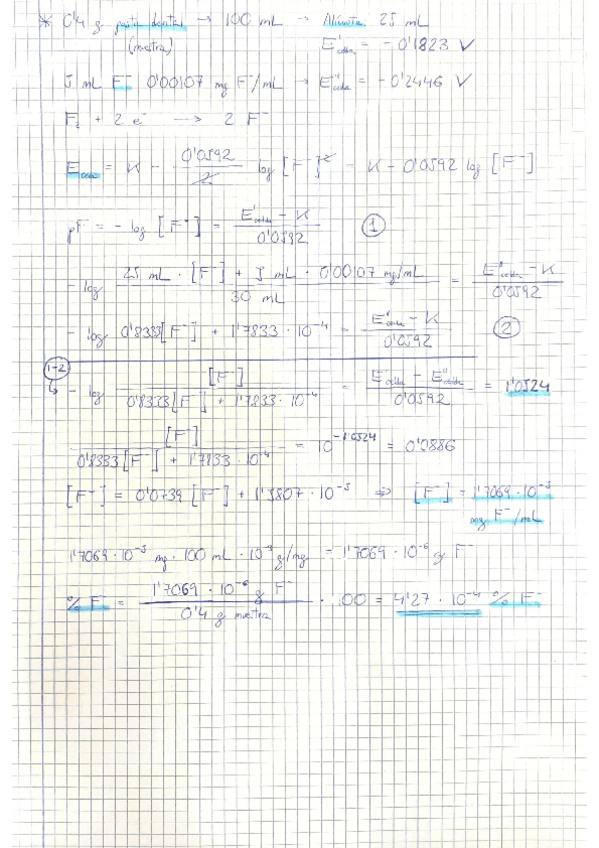 * 0'4 g pasta dental → 100 mL → Alícuota 25 mL
(muestra) E'celda = - 0'1823 V
5 mL F⁻ 0'00107 mg F⁻/mL → E''celda = - 0'2446 V
F₂ + 2 e⁻ → 2 F⁻
Ecelda = K - 0'0592/2 log [F⁻]² = K - 0'0592 log [F⁻]
pF = - log [F⁻] = (E'celda - K)/0'0592 ①
- log (25 mL · [F⁻] + 5 mL · 0'00107 mg/mL)/30 mL = (E''celda - K)/0'0592
- log 0'8333[F⁻] + 1'7833 · 10⁻⁴ = (E''celda - K)/0'0592 ②
1-2
↳ - log [F⁻]/(0'8333[F⁻] + 1'7833 · 10⁻⁴) = (E'celda - E''celda)/0'0592 = 1'0524
[F⁻]/(0'8333[F⁻] + 1'7833 · 10⁻⁴) = 10⁻¹'⁰⁵²⁴ = 0'0886
[F⁻] = 0'0739 [F⁻] + 1'5807 · 10⁻⁵ ⇒ [F⁻] = 1'7069 · 10⁻⁵
mg F⁻/mL
1'7069 · 10⁻⁵ mg · 100 mL · 10⁻³ g/mg = 1'7069 · 10⁻⁶ g F⁻
% F⁻ = (1'7069 · 10⁻⁶ g F⁻)/(0'4 g muestra) · 100 = 4'27 · 10⁻⁴ % F⁻